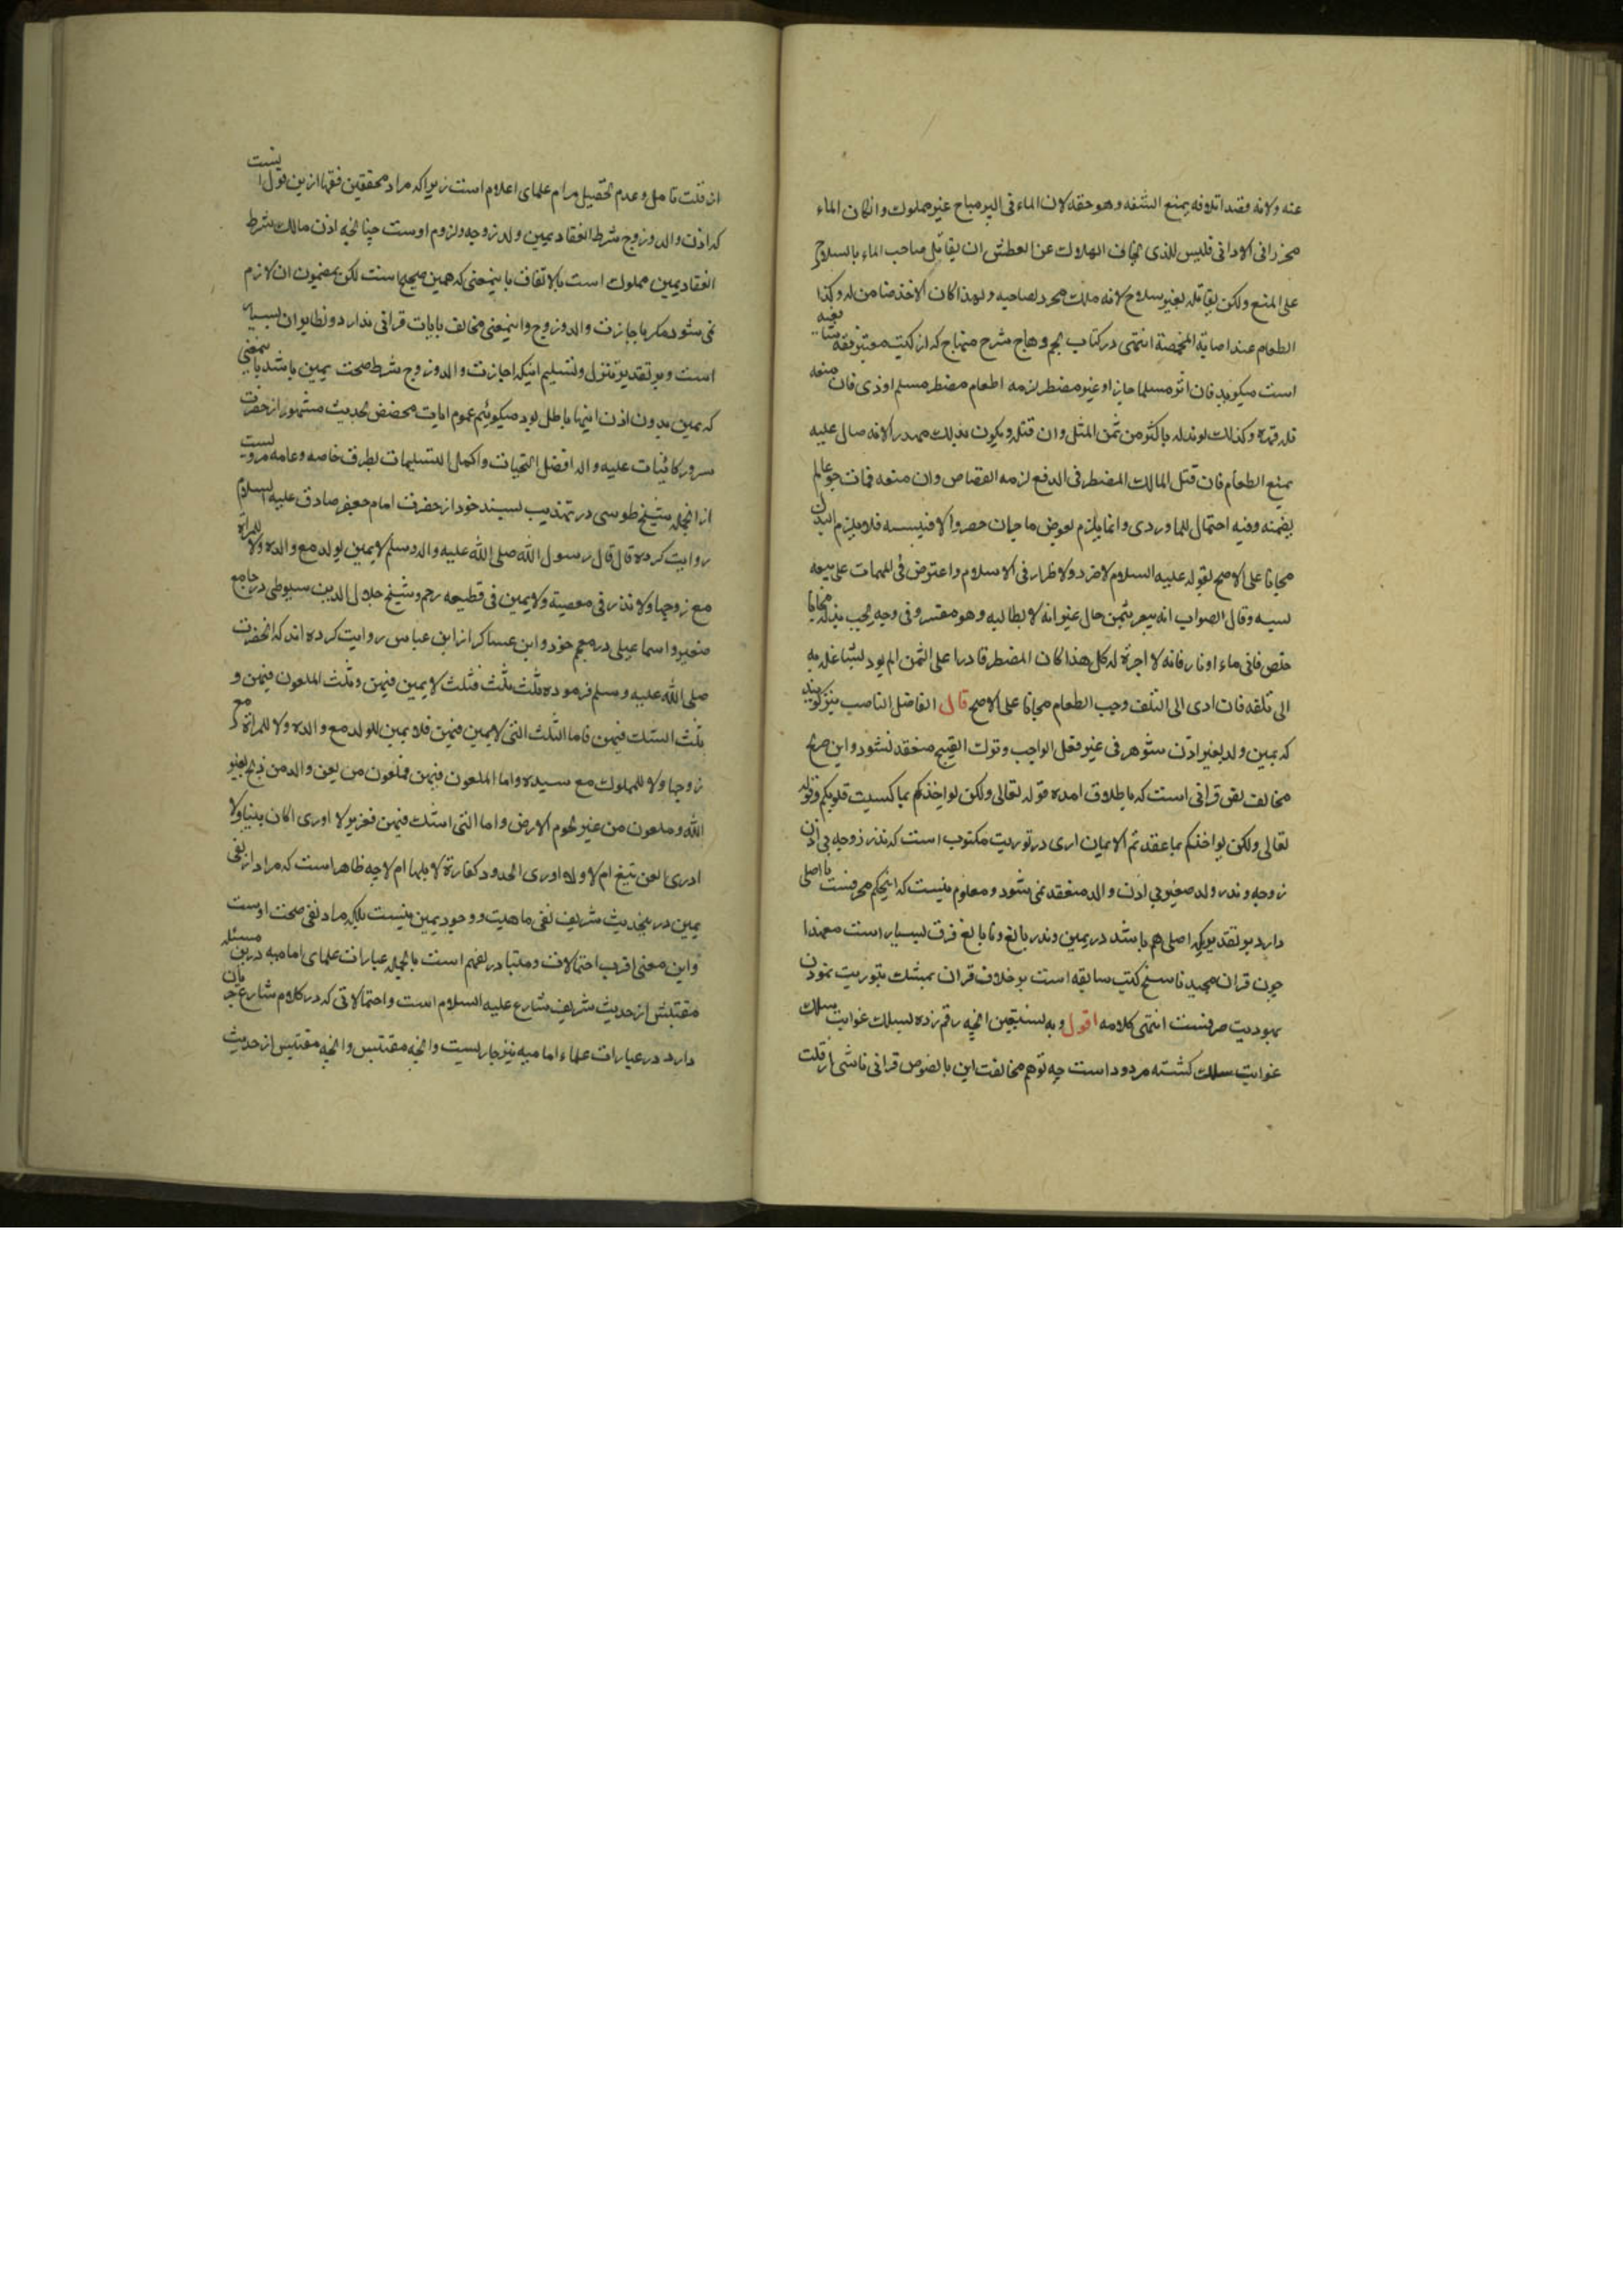 عنه ولانه قصد اتلافه بمنع الشفه وهو حقه لان الماء فى البر مباح غير مملوك وانكان الماء
محرزا فى الاوانى فليس للذى يخاف الهلاك عن العطش ان يقاتل صاحب الماء بالسلاح
على المنع ولكن يقاتله بغير سلاح لانه ملك محرز لصاحبه ولهذا كان الاخذ ضامن له وكذا
الطعام عند اصابة المخمصة انتهى در كتاب نجم وهاج شرح منهاج كه از كتب معتبر فقه شافعيه
است ميكويد فان اثر مسلما جاز او غير مضطر لزمه اطعام مضطر مسلم او ذى فان منعه
فله قهره وكذلك لو بذله باكثر من ثمن المثل وان قتله ويكون بذلك مهدرا لانه صال عليه
بمنع الطعام فان قتل المالك المضطر فى الدفع لزمه القصاص وان منعه فمات جوعا لم
يضمنه وفيه احتمال للماوردى وانما يلزم بعوض ناجز ان حضر والا فنسيه فلا يلزم البذل
مجانا على الاصح لقوله عليه السلام لا ضرر ولا ضرار فى الاسلام واعترض فى المهمات على بيعه
نسيه وقال الصواب انه يبيع بثمن حال غير انه لا يطالبه وهو معسر وفى وجه يجب بذله مجانا
كه يمين ولد بغير اذن شوهر فى غير فعل الواجب وترك القبيح منعقد نشود واين صريح
مخالف نص قرانى است كه باطلاق امده قوله تعالى ولكن يواخذكم بما كسبت قلوبكم وقوله
تعالى ولكن يواخذكم بما عقدتم الايمان ارى در توريت مكتوب است كه نذر زوجه بى اذن
زوجه ونذر ولد صغير بى اذن والد منعقد نمى شود ومعلوم نيست كه اينحكم محرفست يا اصلى
دارد بر تقديريكه اصلى هم باشد در يمين ونذر بالغ ونابالغ فرق بسيار است معهذا
چون قران مجيد ناسخ كتب سابقه است بر خلاف قران تمسك بتوريت نمودن
يهوديت صرفست انتهى كلامه اقول وبه نستعين انچه رقم زده سلك غوايت سلك
غوايت سلك كشته مردود است چه توهم مخالفت اين با نصوص قرانى ناشى از قلت
ان قلت تامل وعدم تحصيل مرام علماى اعلام است زيرا كه مراد محققين فقها ازين قول نيست
كه اذن والد وزوج شرط انعقاد يمين ولد زوجه ولزوم اوست چنانچه اذن مالك شرط
انعقاد يمين مملوك است بالاتفاق باينمعنى كه همين صيغها است لكن مضمون ان لازم
نمى شود مكر باجازت والد وزوج واينمعنى مخالف بايات قرانى ندارد ونظاير ان بسيار
است وبر تقدير تنزل وتسليم اينكه اجازت والد وزوج شرط صحت يمين باشد باينمعنى
كه يمين بدون اذن اينها باطل بود ميكوئيم عموم ايات مخصص بحديث مشهور از حضرت
سرور كائنات عليه واله افضل التحيات واكمل التسليمات بطرق خاصه وعامه مرويست
از انجمله شيخ طوسى در تهذيب بسند خود از حضرت امام جعفر صادق عليه السلام
روايت كرده قال قال رسول الله صلى الله عليه واله وسلم لا يمين لولد مع والده ولا للمراة
مع زوجها ولا نذر فى معصية ولا يمين فى قطيعه رحم وشيخ جلال الدين سيوطى در جامع
صغير واسماعيلى در معجم خود وابن عساكر از ابن عباس روايت كرده اند كه انحضرت
صلى الله عليه وسلم فرموده ثلث ثلث ثلث فثلث لا يمين فيهن وثلث الملعون فيهن و
ثلث اشك فيهن فاما الثلث التى لا يمين فيهن فلا يمين للولد مع والده ولا للمراة مع
زوجها ولا للمملوك مع سيده واما الملعون فيهن فملعون من لعن والد من ذبح لغير
الله وملعون من غير تخوم الارض واما التى اشك فيهن فعزير لا ادرى اكان نبيا ولا
ادرى العن تبع ام لا ولا ادرى الحدود كفارة لاهلها ام لا چه ظاهر است كه مراد از نفى
يمين در ينحديث شريف نفى ماهيت ووجود يمين نيست بلكه مراد نفى صحت اوست
واين معنى اقرب احتمالات ومتبادر بفهم است بالجمله عبارات علماى اماميه درين مسئله
مقتبس از حديث شريف شارع عليه السلام است واحتمالاتى كه در كلام شارع جريان
دارد در عبارات علماء اماميه نيز جاريست وانچه مقتبس وانچه مقتبس از حديث